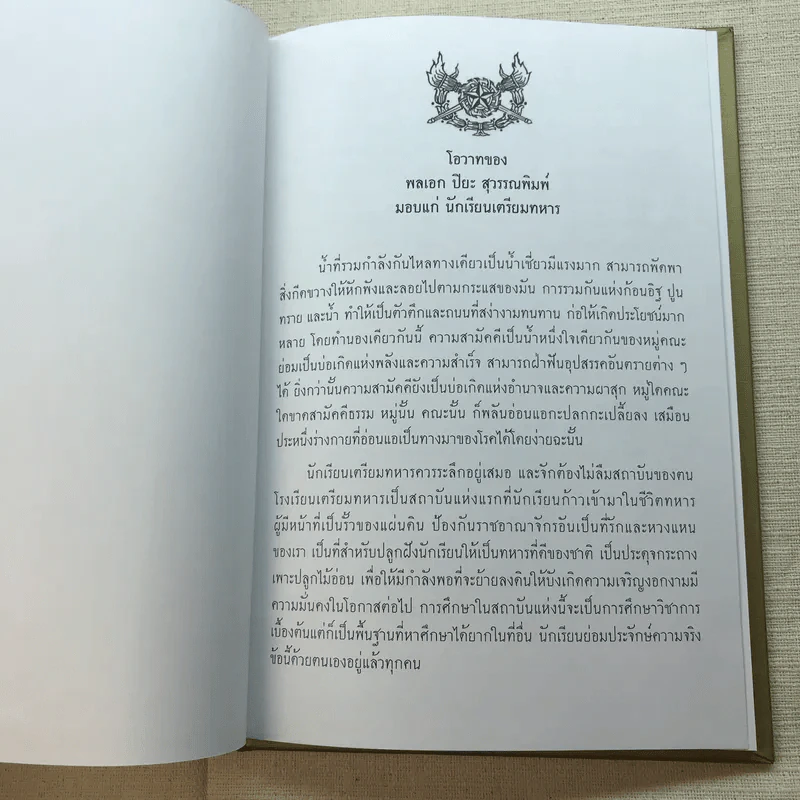 โอวาทของ
พลเอก ปิยะ สุวรรณพิมพ์
มอบแก่ นักเรียนเตรียมทหาร
น้ำที่รวมกำลังกันไหลทางเดียวเป็นน้ำเชี่ยวมีแรงมาก สามารถพัดพา
สิ่งกีดขวางให้หักพังและลอยไปตามกระแสของมัน การรวมกันแห่งก้อนอิฐ ปูน
ทราย และน้ำ ทำให้เป็นตัวตึกและถนนที่สง่างามทนทาน ก่อให้เกิดประโยชน์มาก
หลาย โดยทำนองเดียวกันนี้ ความสามัคคีเป็นน้ำหนึ่งใจเดียวกันของหมู่คณะ
ย่อมเป็นบ่อเกิดแห่งพลังและความสำเร็จ สามารถฝ่าฟันอุปสรรคอันตรายต่าง ๆ
ได้ ยิ่งกว่านั้นความสามัคคียังเป็นบ่อเกิดแห่งอำนาจและความผาสุก หมู่ใดคณะ
ใดขาดสามัคคีธรรม หมู่นั้น คณะนั้น ก็พลันอ่อนแอกะปลกกะเปลี้ยลง เสมือน
ประหนึ่งร่างกายที่อ่อนแอเป็นทางมาของโรคได้โดยง่ายฉะนั้น
นักเรียนเตรียมทหารควรระลึกอยู่เสมอ และจักต้องไม่ลืมสถาบันของตน
โรงเรียนเตรียมทหารเป็นสถาบันแห่งแรกที่นักเรียนก้าวเข้ามาในชีวิตทหาร
ผู้มีหน้าที่เป็นรั้วของแผ่นดิน ป้องกันราชอาณาจักรอันเป็นที่รักและหวงแหน
ของเรา เป็นที่สำหรับปลูกฝังนักเรียนให้เป็นทหารที่ดีของชาติ เป็นประดุจกระถาง
เพาะปลูกไม้อ่อน เพื่อให้มีกำลังพอที่จะย้ายลงดินให้บังเกิดความเจริญงอกงามมี
ความมั่นคงในโอกาสต่อไป การศึกษาในสถาบันแห่งนี้จะเป็นการศึกษาวิชาการ
เบื้องต้นแต่ก็เป็นพื้นฐานที่หาศึกษาได้ยากในที่อื่น นักเรียนย่อมประจักษ์ความจริง
ข้อนี้ด้วยตนเองอยู่แล้วทุกคน